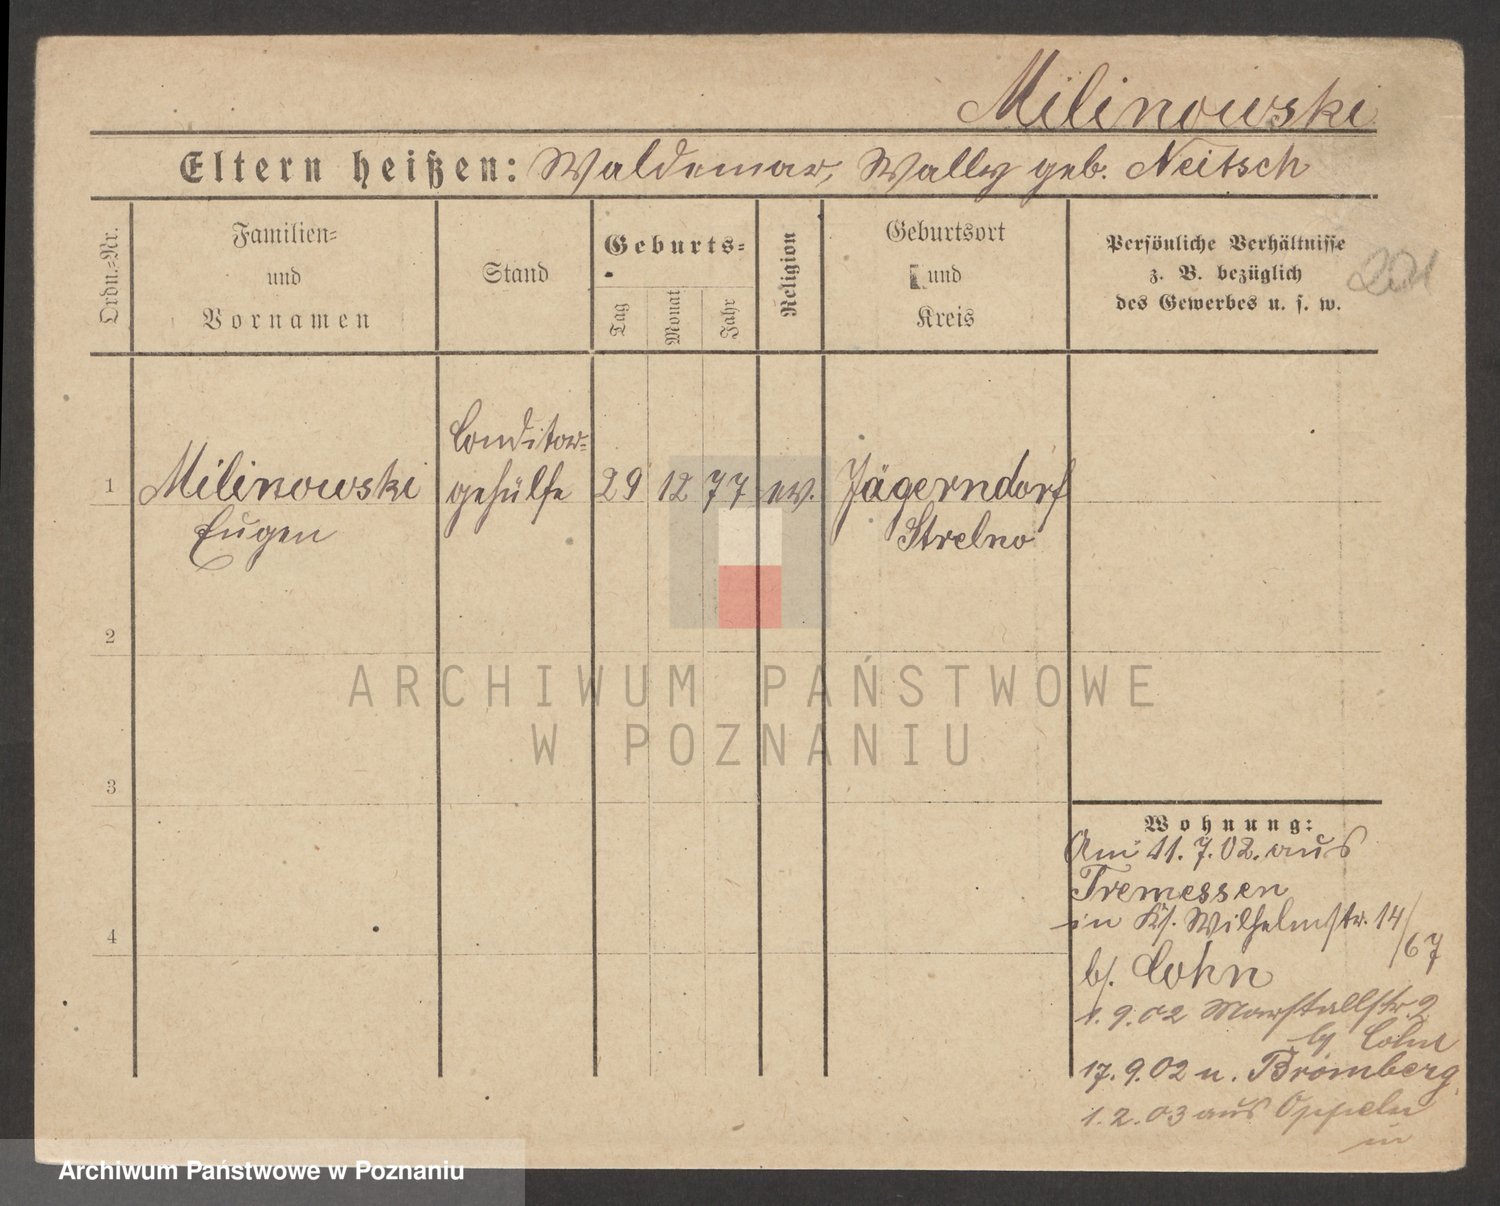 Milinowski
Eltern heißen: Waldemar, Wally geb. Neitsch
Ordn.=Nr.
Familien=
und
Vornamen
Stand
Geburts=
Tag
Monat
Jahr
Religion
Geburtsort
und
Kreis
Persönliche Verhältnisse
z. B. bezüglich
des Gewerbes u. s. w.
201
1
Milinowski
Eugen
Conditor=
gehülfe
29
12
77
ev.
Jägerndorf
Strelno
2
3
4
Wohnung:
Am 11.7.02. aus
Tremessen
in Kl. Wilhelmstr. 14/67
b/. Cohn
1.9.02 Marstallstr. 2
by Cohn
17.9.02 n. Bromberg
1.2.03 aus Oppeln
in
ARCHIWUM PAŃSTWOWE
W POZNANIU
Archiwum Państwowe w Poznaniu